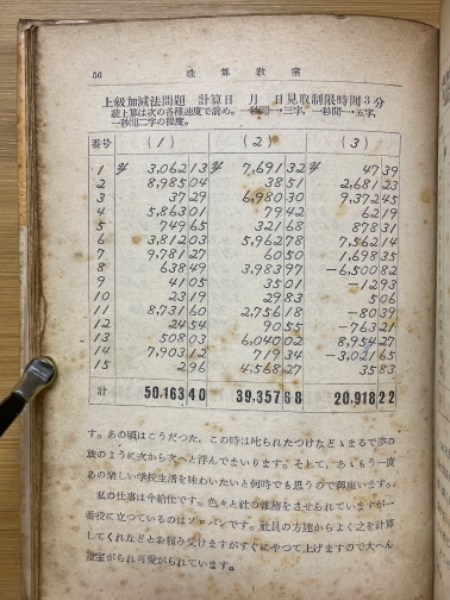 56 珠算教室
上級加減法問題 計算日 月 日見取制限時間3分
読上算は次の各種速度で読め。一秒間一・三字,一秒間一・五字,
一秒間二字の程度。
番号 (1) (2) (3)
1 ¥ 3,062 13 ¥ 7,691 32 ¥ 47 39
2 8,985 04 38 51 2,681 23
3 37 29 6,980 30 9,372 45
4 5,863 01 79 42 62 19
5 749 65 321 68 878 31
6 3,812 03 5,962 78 7,562 14
7 9,781 27 60 50 1,698 35
8 638 49 3,983 97 -6,500 82
9 41 05 35 01 -12 93
10 23 19 29 83 5 06
11 8,731 60 2,756 18 -80 39
12 24 54 90 55 -763 21
13 508 03 6,040 02 8,954 27
14 7,903 12 719 34 -3,021 65
15 2 96 4,568 27 35 83
計 50,163 40 39,357 68 20,918 22
す。あの頃はこうだつた,この時は叱られたつけなどゝまるで夢の
族のように次から次へと浮んでまいります。そして,あゝもう一度
あの楽しい学校生活を味わいたいと何時でも思うので御座います。
私の仕事は今給仕です。色々と社の雑務をさせられていますが一
番役に立つているのはソロバンです。社員の方達からよく之を計算
してくれなどとお頼み受けますがすぐにやつて上げますので大へん
重宝がられ可愛がられています。